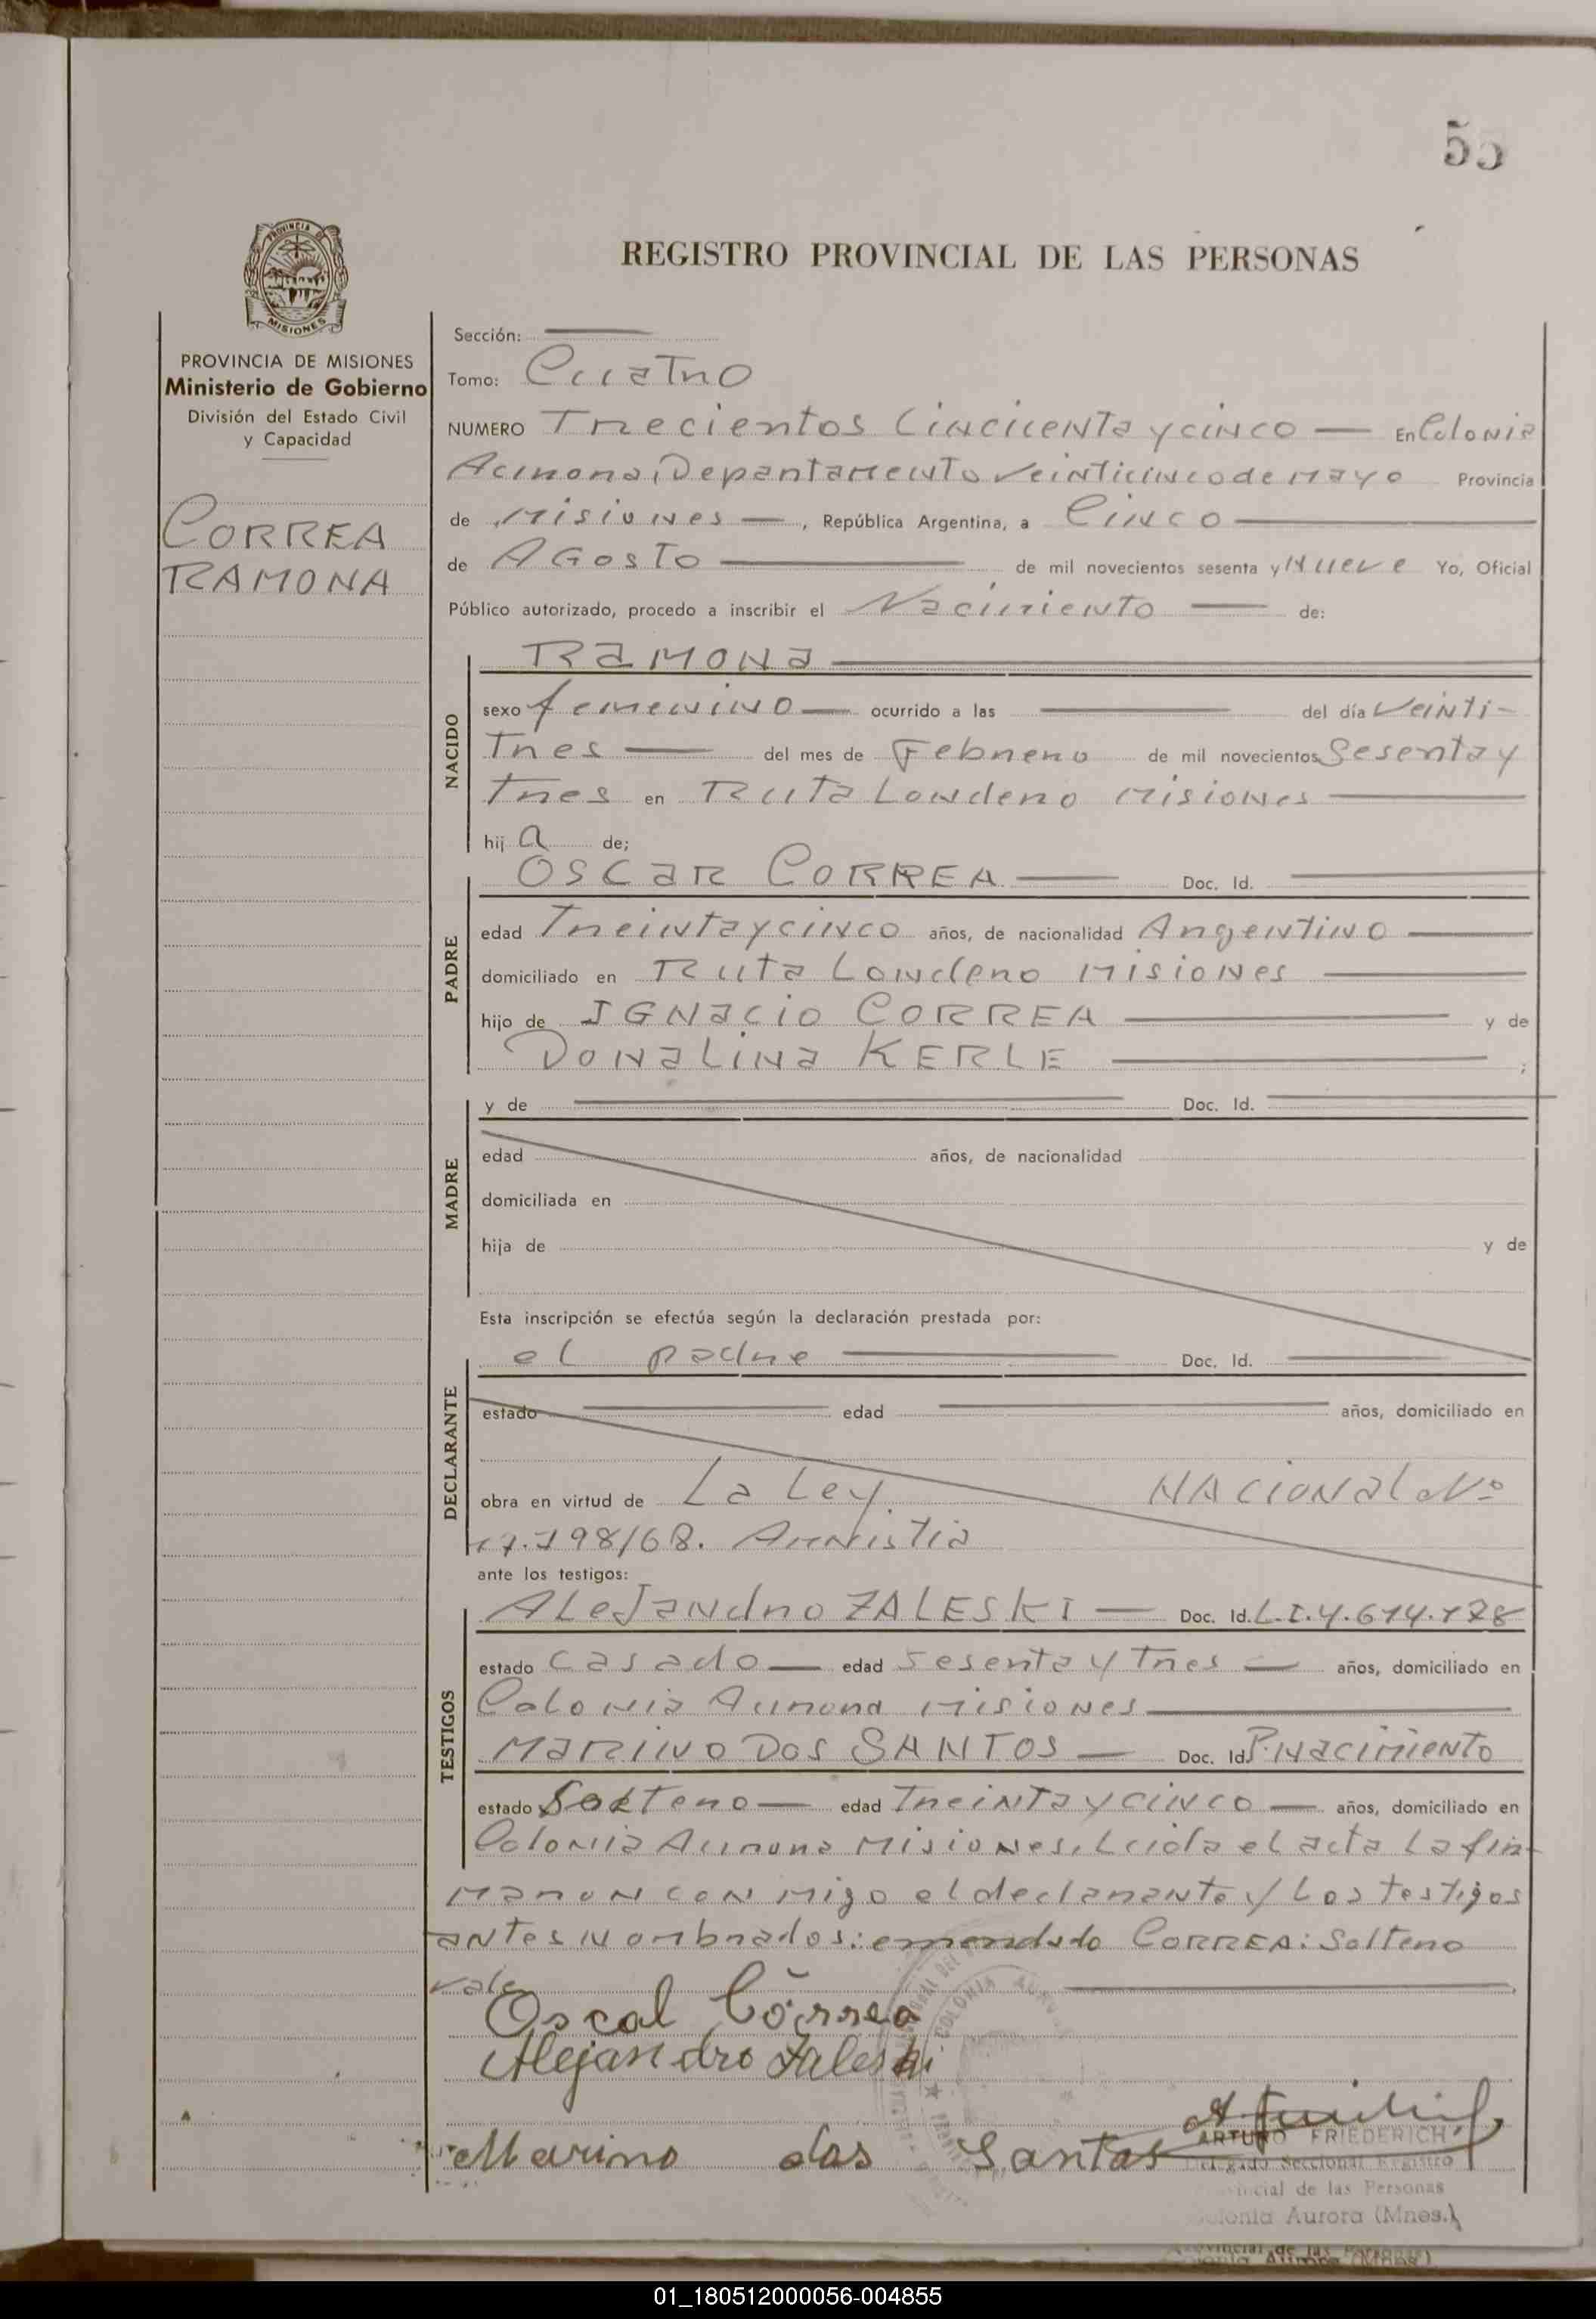 55
REGISTRO PROVINCIAL DE LAS PERSONAS
PROVINCIA DE
MISIONES
PROVINCIA DE MISIONES
Ministerio de Gobierno
División del Estado Civil
y Capacidad
CORREA
RAMONA
Sección:
Tomo: Cuatro
NUMERO Trecientos Cincuenta y cinco — En Colonia
Aurora, Departamento Veinticinco de Mayo Provincia
de Misiones —, República Argentina, a Cinco
de Agosto — de mil novecientos sesenta y Nueve Yo, Oficial
Público autorizado, procedo a inscribir el Nacimiento — de:
NACIDO
Ramona
sexo femenino — ocurrido a las — del día Veinti-
tres — del mes de Febrero de mil novecientos Sesenta y
tres en Ruta Londero Misiones
hij a de;
PADRE
Oscar CORREA — Doc. Id.
edad Treinta y cinco años, de nacionalidad Argentino
domiciliado en Ruta Londero Misiones
hijo de IGNacio CORREA y de
Donalina KERLE ;
MADRE
y de — Doc. Id.
edad años, de nacionalidad
domiciliada en
hija de y de
Esta inscripción se efectúa según la declaración prestada por:
DECLARANTE
el padre — Doc. Id.
estado — edad — años, domiciliado en
obra en virtud de La Ley NACIONAL Nº
17.198/68. Amnistia
ante los testigos:
TESTIGOS
Alejandro ZALESKI — Doc. Id. L.I.4.614.178
estado Casado — edad sesenta y tres — años, domiciliado en
Colonia Aurora Misiones
Marino Dos SANTOS — Doc. Id P. Nacimiento
estado Soltero — edad Treinta y cinco — años, domiciliado en
Colonia Aurora Misiones, Leida el acta La fir-
maron con migo el declarante y Los testigos
antes nombrados: enmendado CORREA: Soltero
vale
Oscal Córrea
Alejandro Zaleski
Marino dos Santos
COLONIA AURORA
ARTURO FRIEDERICH
Delegado Seccional Registro
Provincial de las Personas
Colonia Aurora (Mnes.)
Provincial de las Personas
Colonia Aurora (Mnes.)
01_180512000056-004855